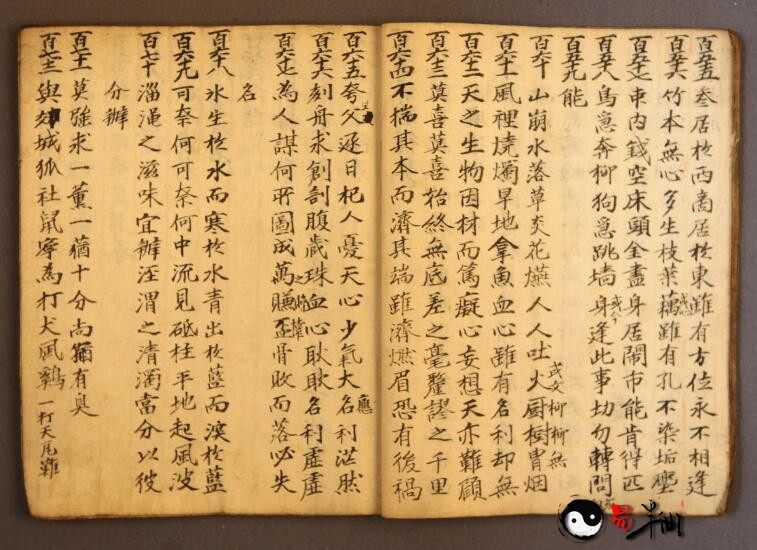 百五十五叁居於西商居於東雖有方位永不相逢
百五十六竹本無心多生枝葉藕雖有孔不染垢塵
百五十七囊内錢空床頭金盡身居鬧市能肯得匹
百五十八鳥急奔柳狗急跳墙身逢此事切勿轉問
百五十九能
百六十山崩水落草炎花燕人人吐火厨樹胃烟
或文柳柳無
百六十一風裡燒爛旱地拿魚血心雖有名利却無
百六十二天之生物因材而篤癡心妄想天亦難顧
百六十三莫喜莫喜始終無底差之毫釐謬之千里
百六十四不揣其本而濟其端雖濟燃眉恐有後禍
百六十五夸父逐日杞人憂天心少氣大名利茫然
應
百六十六刻舟求創剖腹歲珠血心耿耿名利虛虛
百六十七為人謀何所圖成萬賺盃骨敗而落必失
名
百六十八氷生於水而寒於水青出於藍而深於藍
百六十九可奈何可奈何中流見砥柱平地起風波
百七十淄澠之滋味宜辦涇渭之清濁當分以彼
分辦
百七十一莫強求一薰一蕕十分尚猶有臭
百七十二與城狐社鼠寧為打犬風鷄一打天尾灘
易半仙